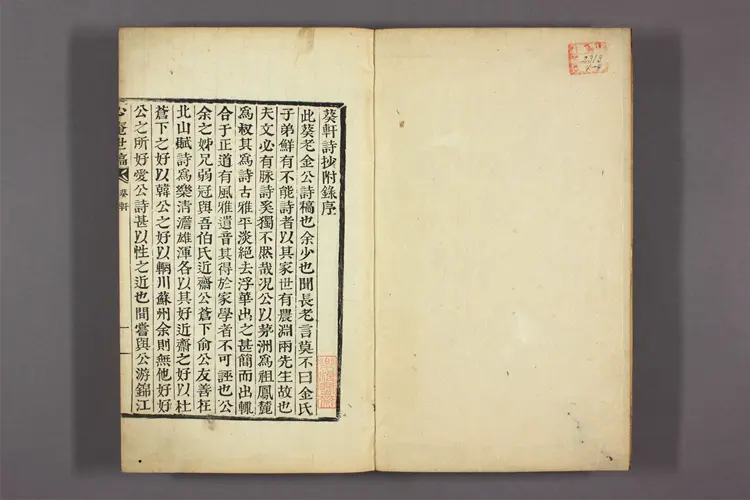 葵軒詩抄附錄序
此葵老金公詩稿也余少也聞長老言莫不曰金氏
子弟鮮有不能詩者以其家世有農淵兩先生故也
夫文必有脉詩奚獨不然哉况公以茅洲爲祖鳳麓
爲叔其爲詩古雅平淡絶去浮華出之甚簡而出輒
合于正道有風雅遺音其得於家學者不可誣也公
余之姊兄弱冠與吾伯氏近齋公蒼下俞公友善在
北山賦詩爲樂清澹雄渾各以其好近齋之好以杜
蒼下之好以韓公之好以輞川蘇州余則無他好好
公之所好愛公詩甚以性之近也間嘗與公游錦江
世稿
葵軒
一
2313